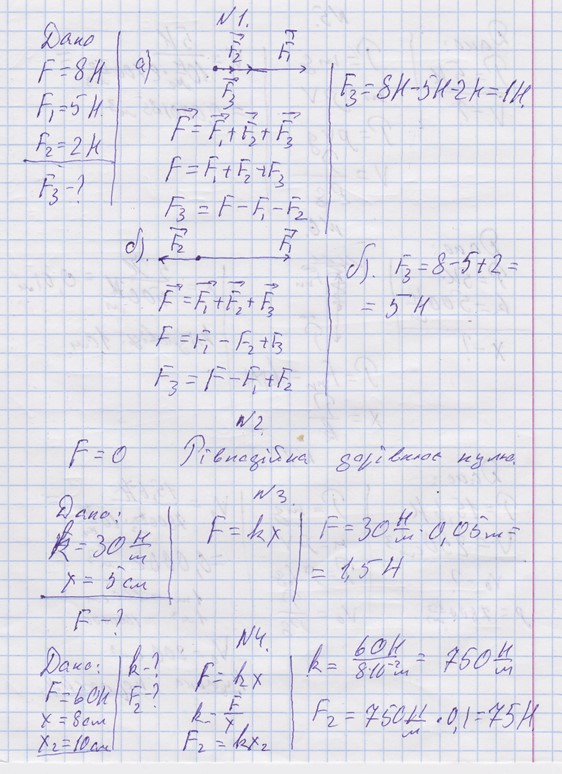 №1.
Дано
F = 8Н
F₁ = 5Н.
F₂ = 2Н
F₃ - ?
а)
F⃗₂ F⃗₁
F⃗₃
F⃗ = F⃗₁ + F⃗₂ + F⃗₃
F = F₁ + F₂ + F₃
F₃ = F - F₁ - F₂
F₃ = 8Н - 5Н - 2Н = 1Н.
б). F⃗₂ F⃗₁
F⃗ = F⃗₁ + F⃗₂ + F⃗₃
F = F₁ - F₂ + F₃
F₃ = F - F₁ + F₂
б). F₃ = 8 - 5 + 2 =
= 5Н
№2.
F = 0 Рівнодійна дорівнює нулю.
№3.
Дано:
k = 30 Н/м
x = 5 см
F - ?
F = kx
F = 30 Н/м · 0,05 м =
= 1,5Н
№4.
Дано:
F = 60Н
x = 8 см
x₂ = 10 см
k - ?
F₂ - ?
F = kx
k = F/x
F₂ = kx₂
k = 60Н / 8·10⁻² м = 750 Н/м
F₂ = 750 Н/м · 0,1 = 75Н.